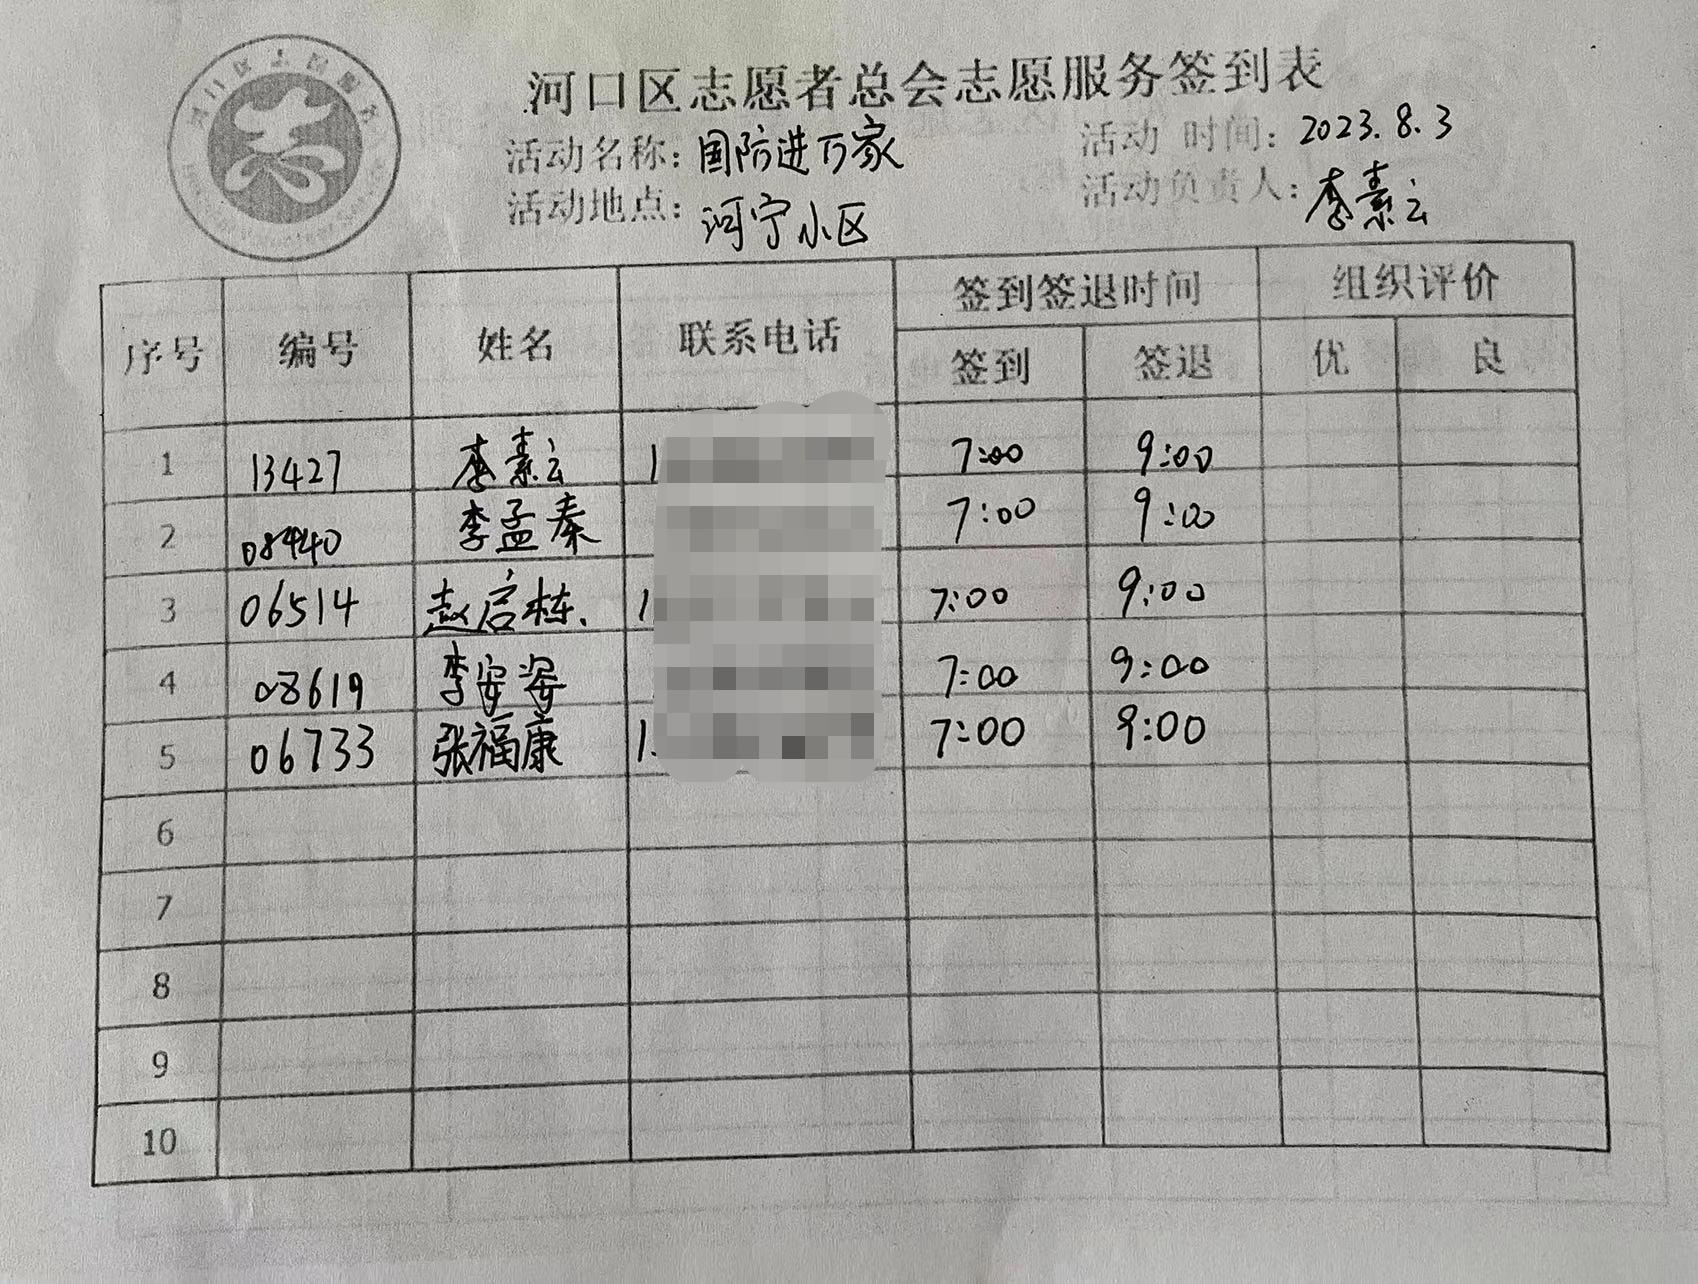 河口区志愿者总会志愿服务签到表
活动名称：国防进万家 活动 时间：2023.8.3
活动地点：河宁小区 活动负责人：李素云
序号 编号 姓名 联系电话 签到签退时间 组织评价
签到 签退 优 良
1 13427 李素云 1 7:00 9:00
2 08440 李孟秦 7:00 9:00
3 06514 赵启栋、 1 7:00 9:00
4 08619 李安姿 7:00 9:00
5 06733 张福康 1 7:00 9:00
6
7
8
9
10